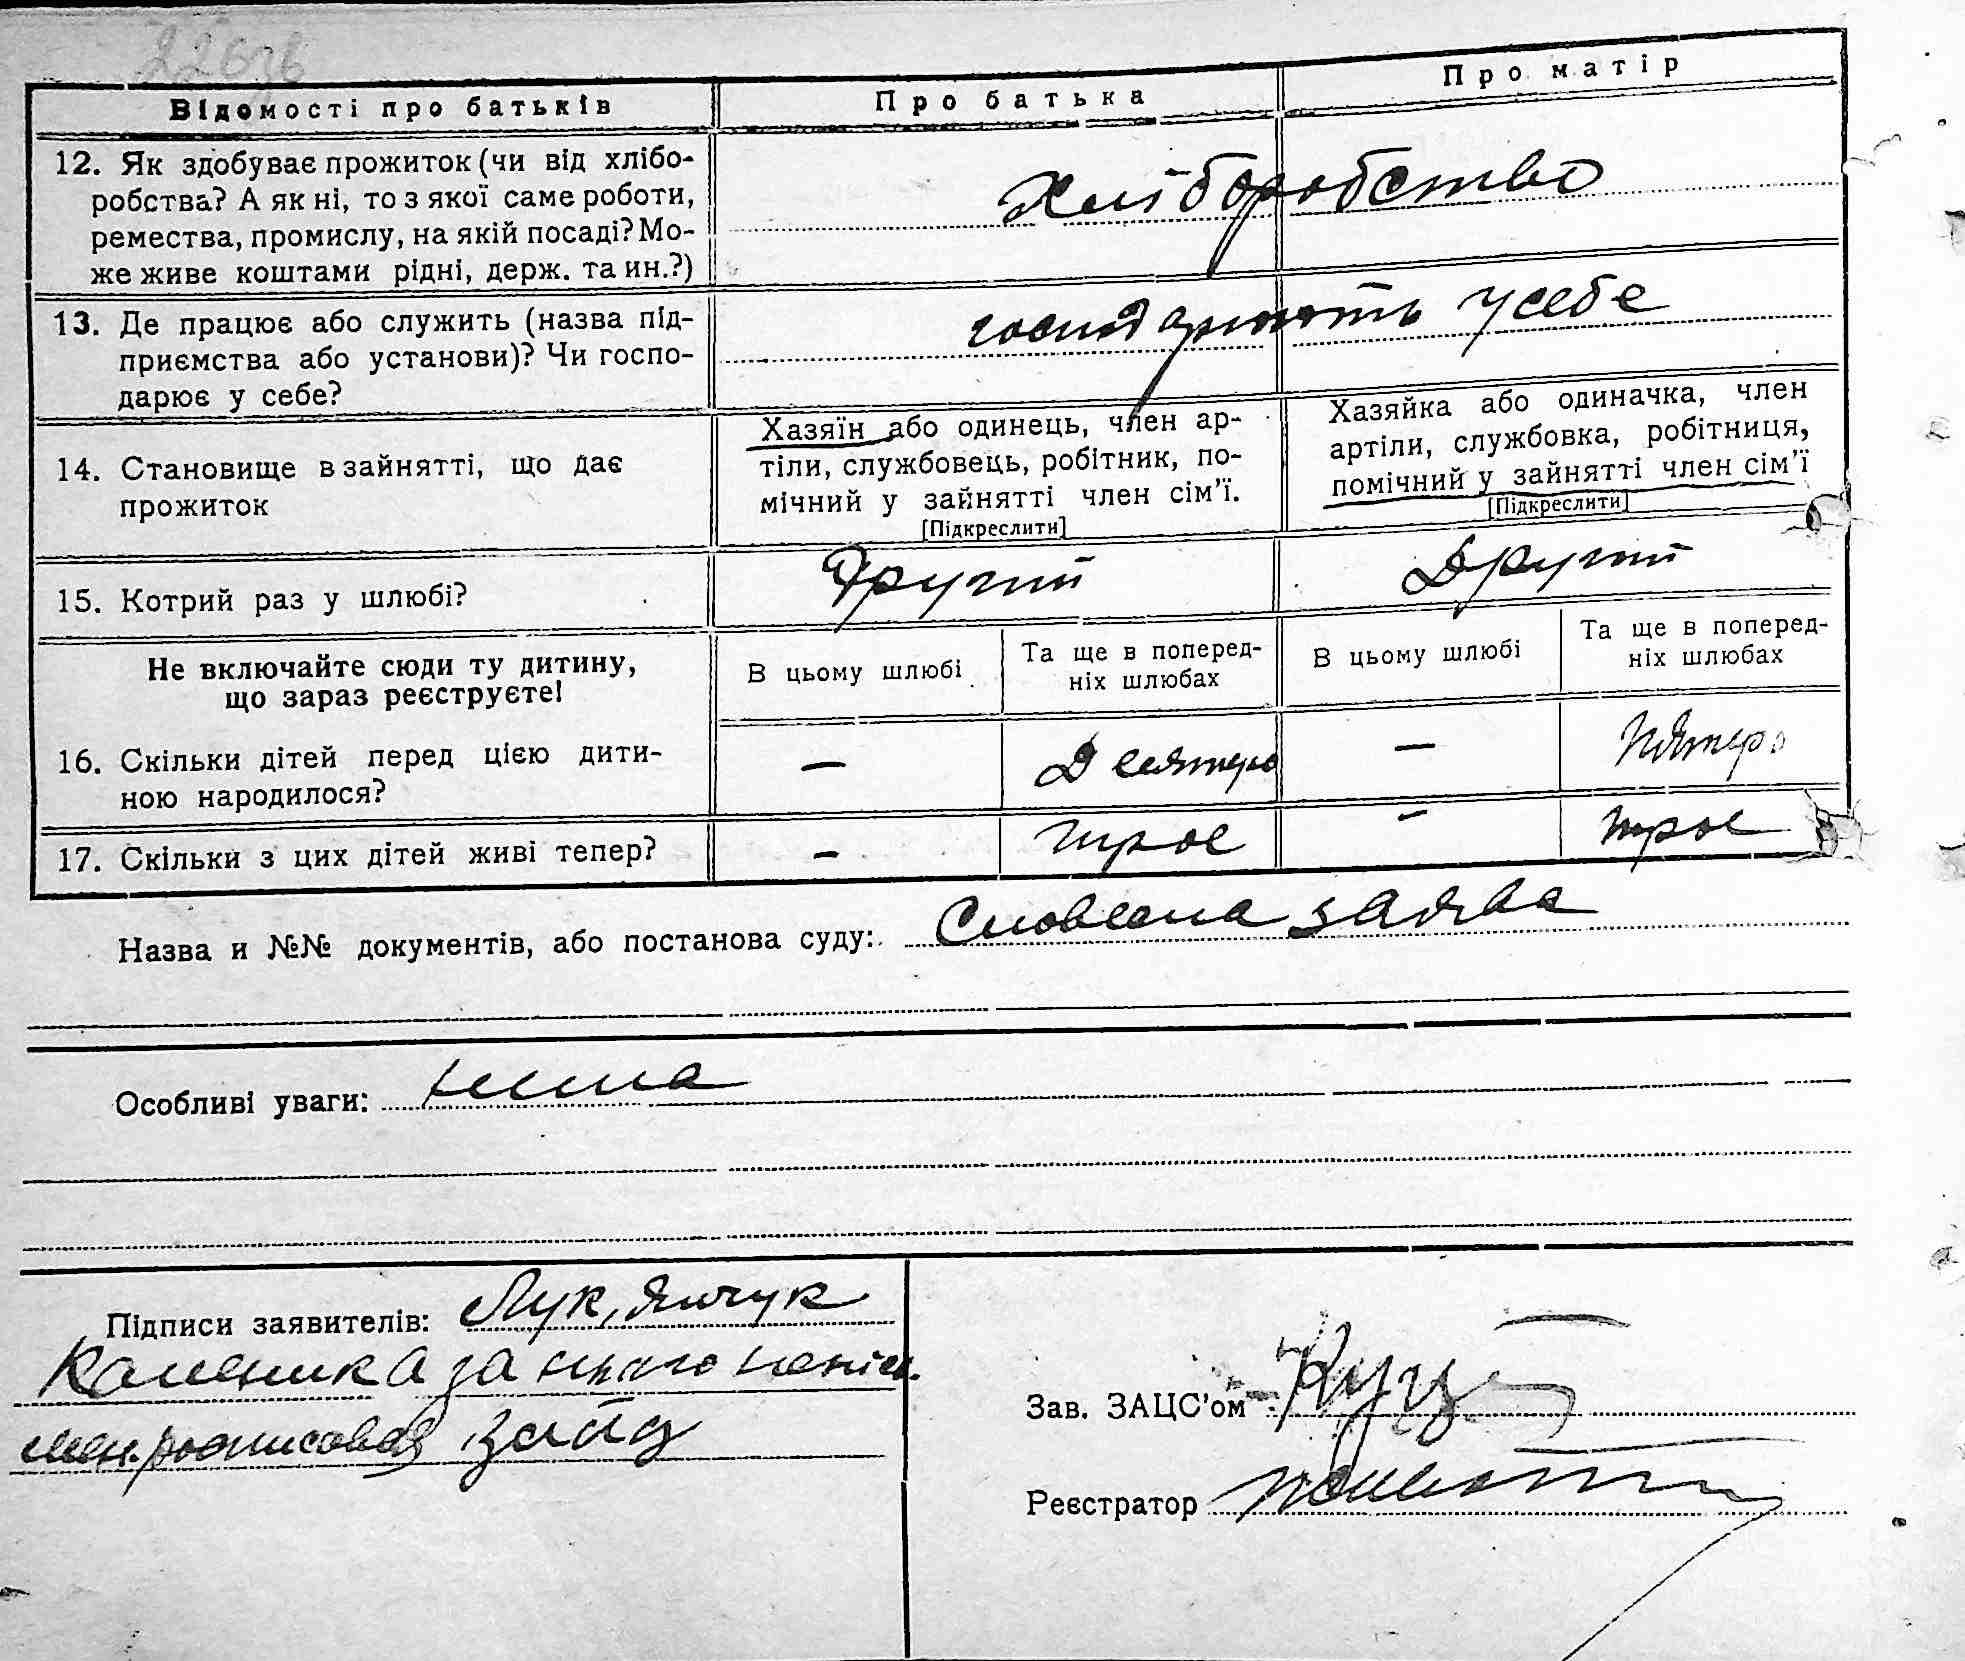 22636
Відомості про батьків
Про батька
Про матір
12. Як здобуває прожиток (чи від хлібо-
робства? А як ні, то з якої саме роботи,
ремества, промислу, на якій посаді? Мо-
же живе коштами рідні, держ. та ин.?)
Хліборобство
13. Де працює або служить (назва під-
приємства або установи)? Чи госпо-
дарює у себе?
господарюють у себе
14. Становище в зайнятті, що дає
прожиток
Хазяїн або одинець, член ар-
тіли, службовець, робітник, по-
мічний у зайнятті член сім'ї.
[Підкреслити]
Хазяйка або одиначка, член
артіли, службовка, робітниця,
помічний у зайнятті член сім'ї
[Підкреслити]
15. Котрий раз у шлюбі?
Другий
Другий
Не включайте сюди ту дитину,
що зараз реєструєте!
В цьому шлюбі
Та ще в поперед-
ніх шлюбах
В цьому шлюбі
Та ще в поперед-
ніх шлюбах
16. Скільки дітей перед цією дити-
ною народилося?
—
Десятеро
—
Пятеро
17. Скільки з цих дітей живі тепер?
—
трое
-
трое
Назва и №№ документів, або постанова суду: Словесна заява
Особливі уваги: нема
Підписи заявителів: Лук,янчук
Каленика за нього
Зав. ЗАЦС'ом Куц
Реєстратор